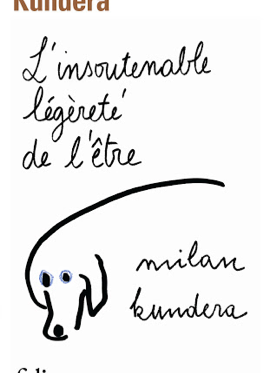 Kundera
L'insoutenable
légèreté
de l'être
milan
kundera